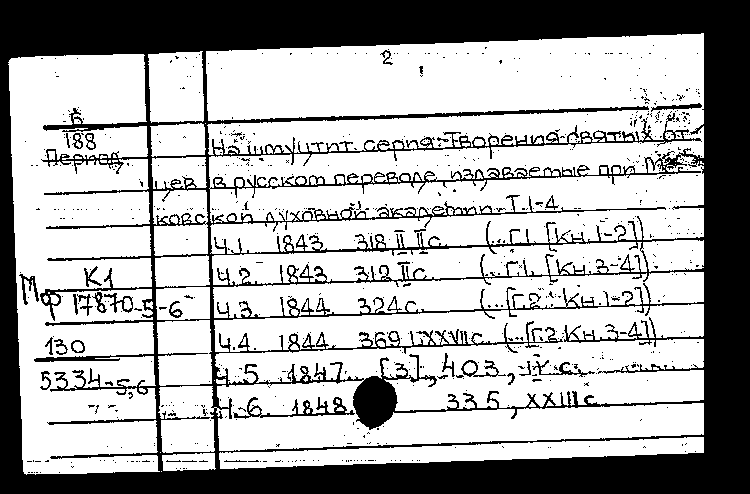 2
Б
188
Период.
На шмуцтит. серия: Творения святых от-
цев в русском переводе, издаваемые при Мос-
ковской духовной академии. Т.1-4.
Ч.1. 1843. 318, II, II с. (...Г.1. [Кн.1-2]).
К1
Ч.2. 1843. 312, II с. (...Г.1. [Кн.3-4])
Мф 17870-5-6
Ч.3. 1844. 324 с. (...[Г.2. Кн.1-2])
130
Ч.4. 1844. 369, LXXVII с. (...[Г.2. Кн.3-4])
5334-5,6
Ч.5. 1847. [3], 403, IV с.
Ч.6. 1848. 335, XXIII с.